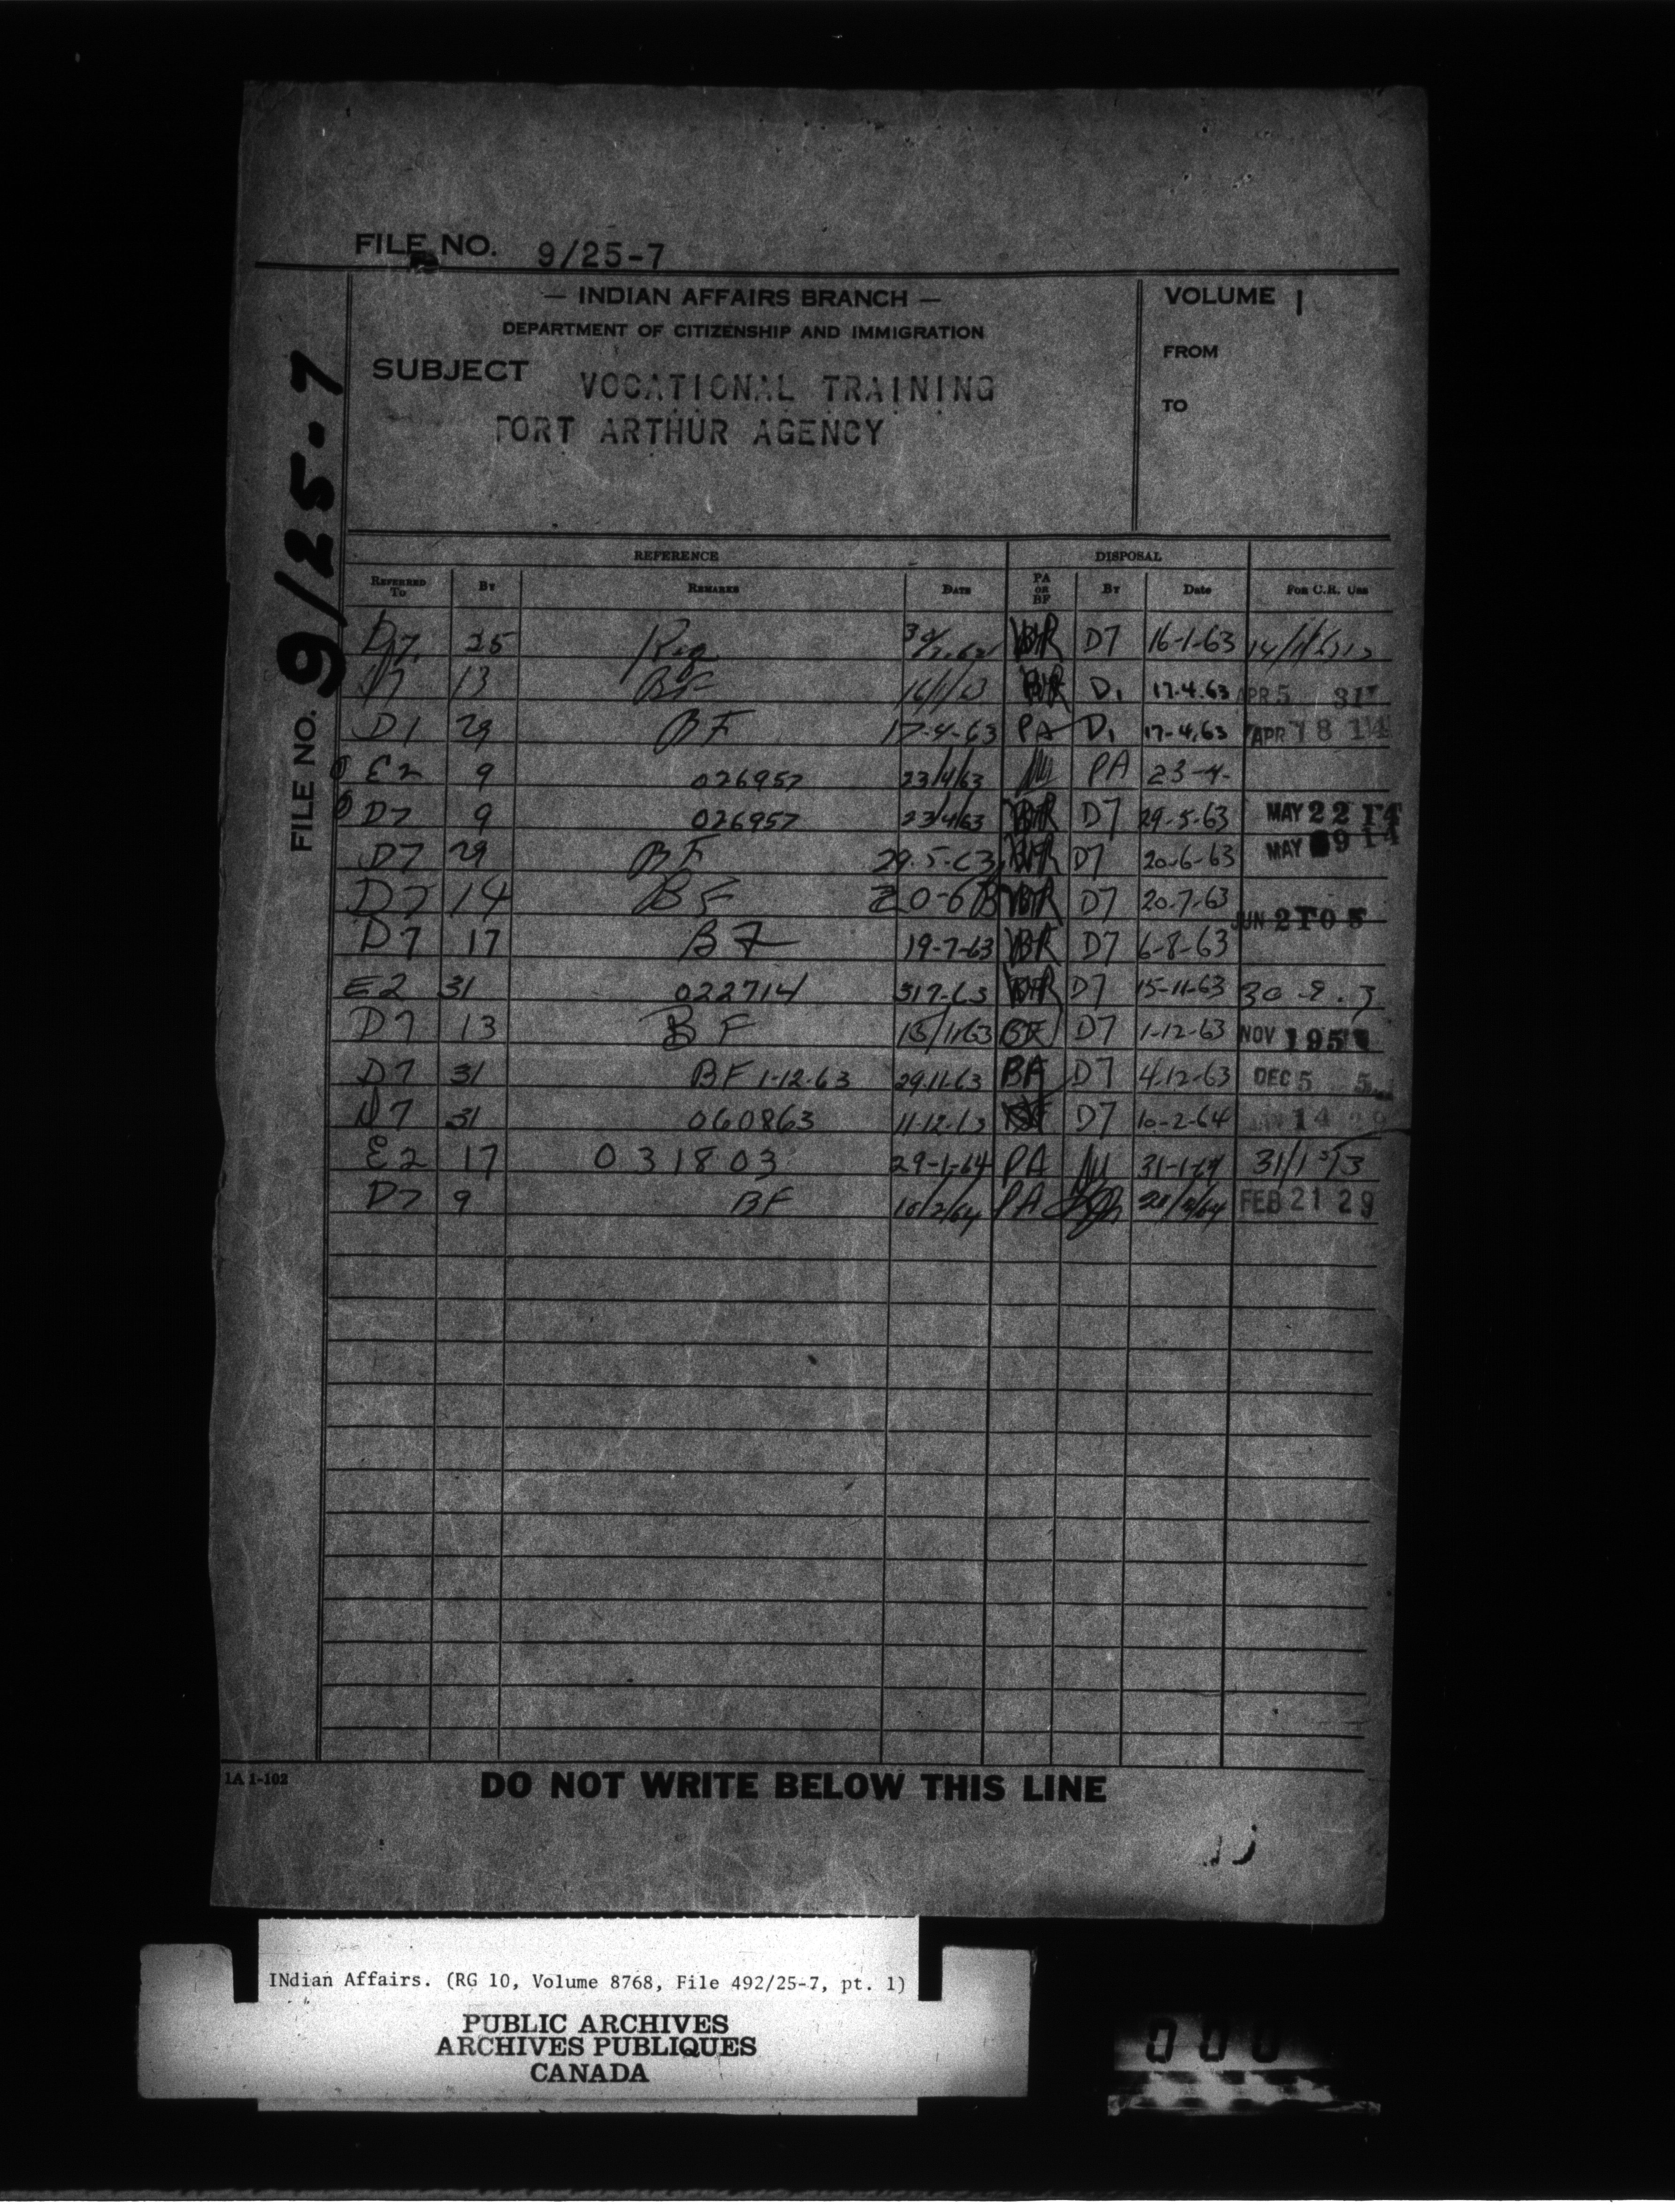 FILE NO. 9/25-7
— INDIAN AFFAIRS BRANCH —
DEPARTMENT OF CITIZENSHIP AND IMMIGRATION
SUBJECT VOCATIONAL TRAINING
FORT ARTHUR AGENCY
VOLUME 1
FROM
TO
FILE NO. 9/25-7
REFERENCE DISPOSAL
REFERRED TO BY REMARKS DATE PA OR BF BY Date FOR C.R. USE
D7 25 D7 16-1-63
D7 13 BF 16/1/63 D1 17.4.63 APR 5
D1 29 BF 17-4-63 PA D1 17-4,63 APR 18 14
E2 9 026957 23/4/63 PA 23-4-
D7 9 026957 23/4/63 D7 29-5-63 MAY 22 14
D7 29 BF 29.5-63 D7 20-6-63 MAY 9 14
D7 14 BF 20-6 D7 20-7-63
D7 17 BF 19-7-63 D7 6-8-63 JUN 2
E2 31 022714 317-63 D7 15-11-63
D7 13 BF 15/1163 BF D7 1-12-63 NOV 195
D7 31 BF 1-12-63 29.11-63 D7 4-12-63 DEC 5 5
D7 31 060863 11-12-63 D7 10-2-64 14 29
E2 17 031803 29-1-64 PA 31-1-64 31/1
D7 9 BF 10/2/64 PA FEB 21 29
IA 1-102
DO NOT WRITE BELOW THIS LINE
INdian Affairs. (RG 10, Volume 8768, File 492/25-7, pt. 1)
PUBLIC ARCHIVES
ARCHIVES PUBLIQUES
CANADA
000